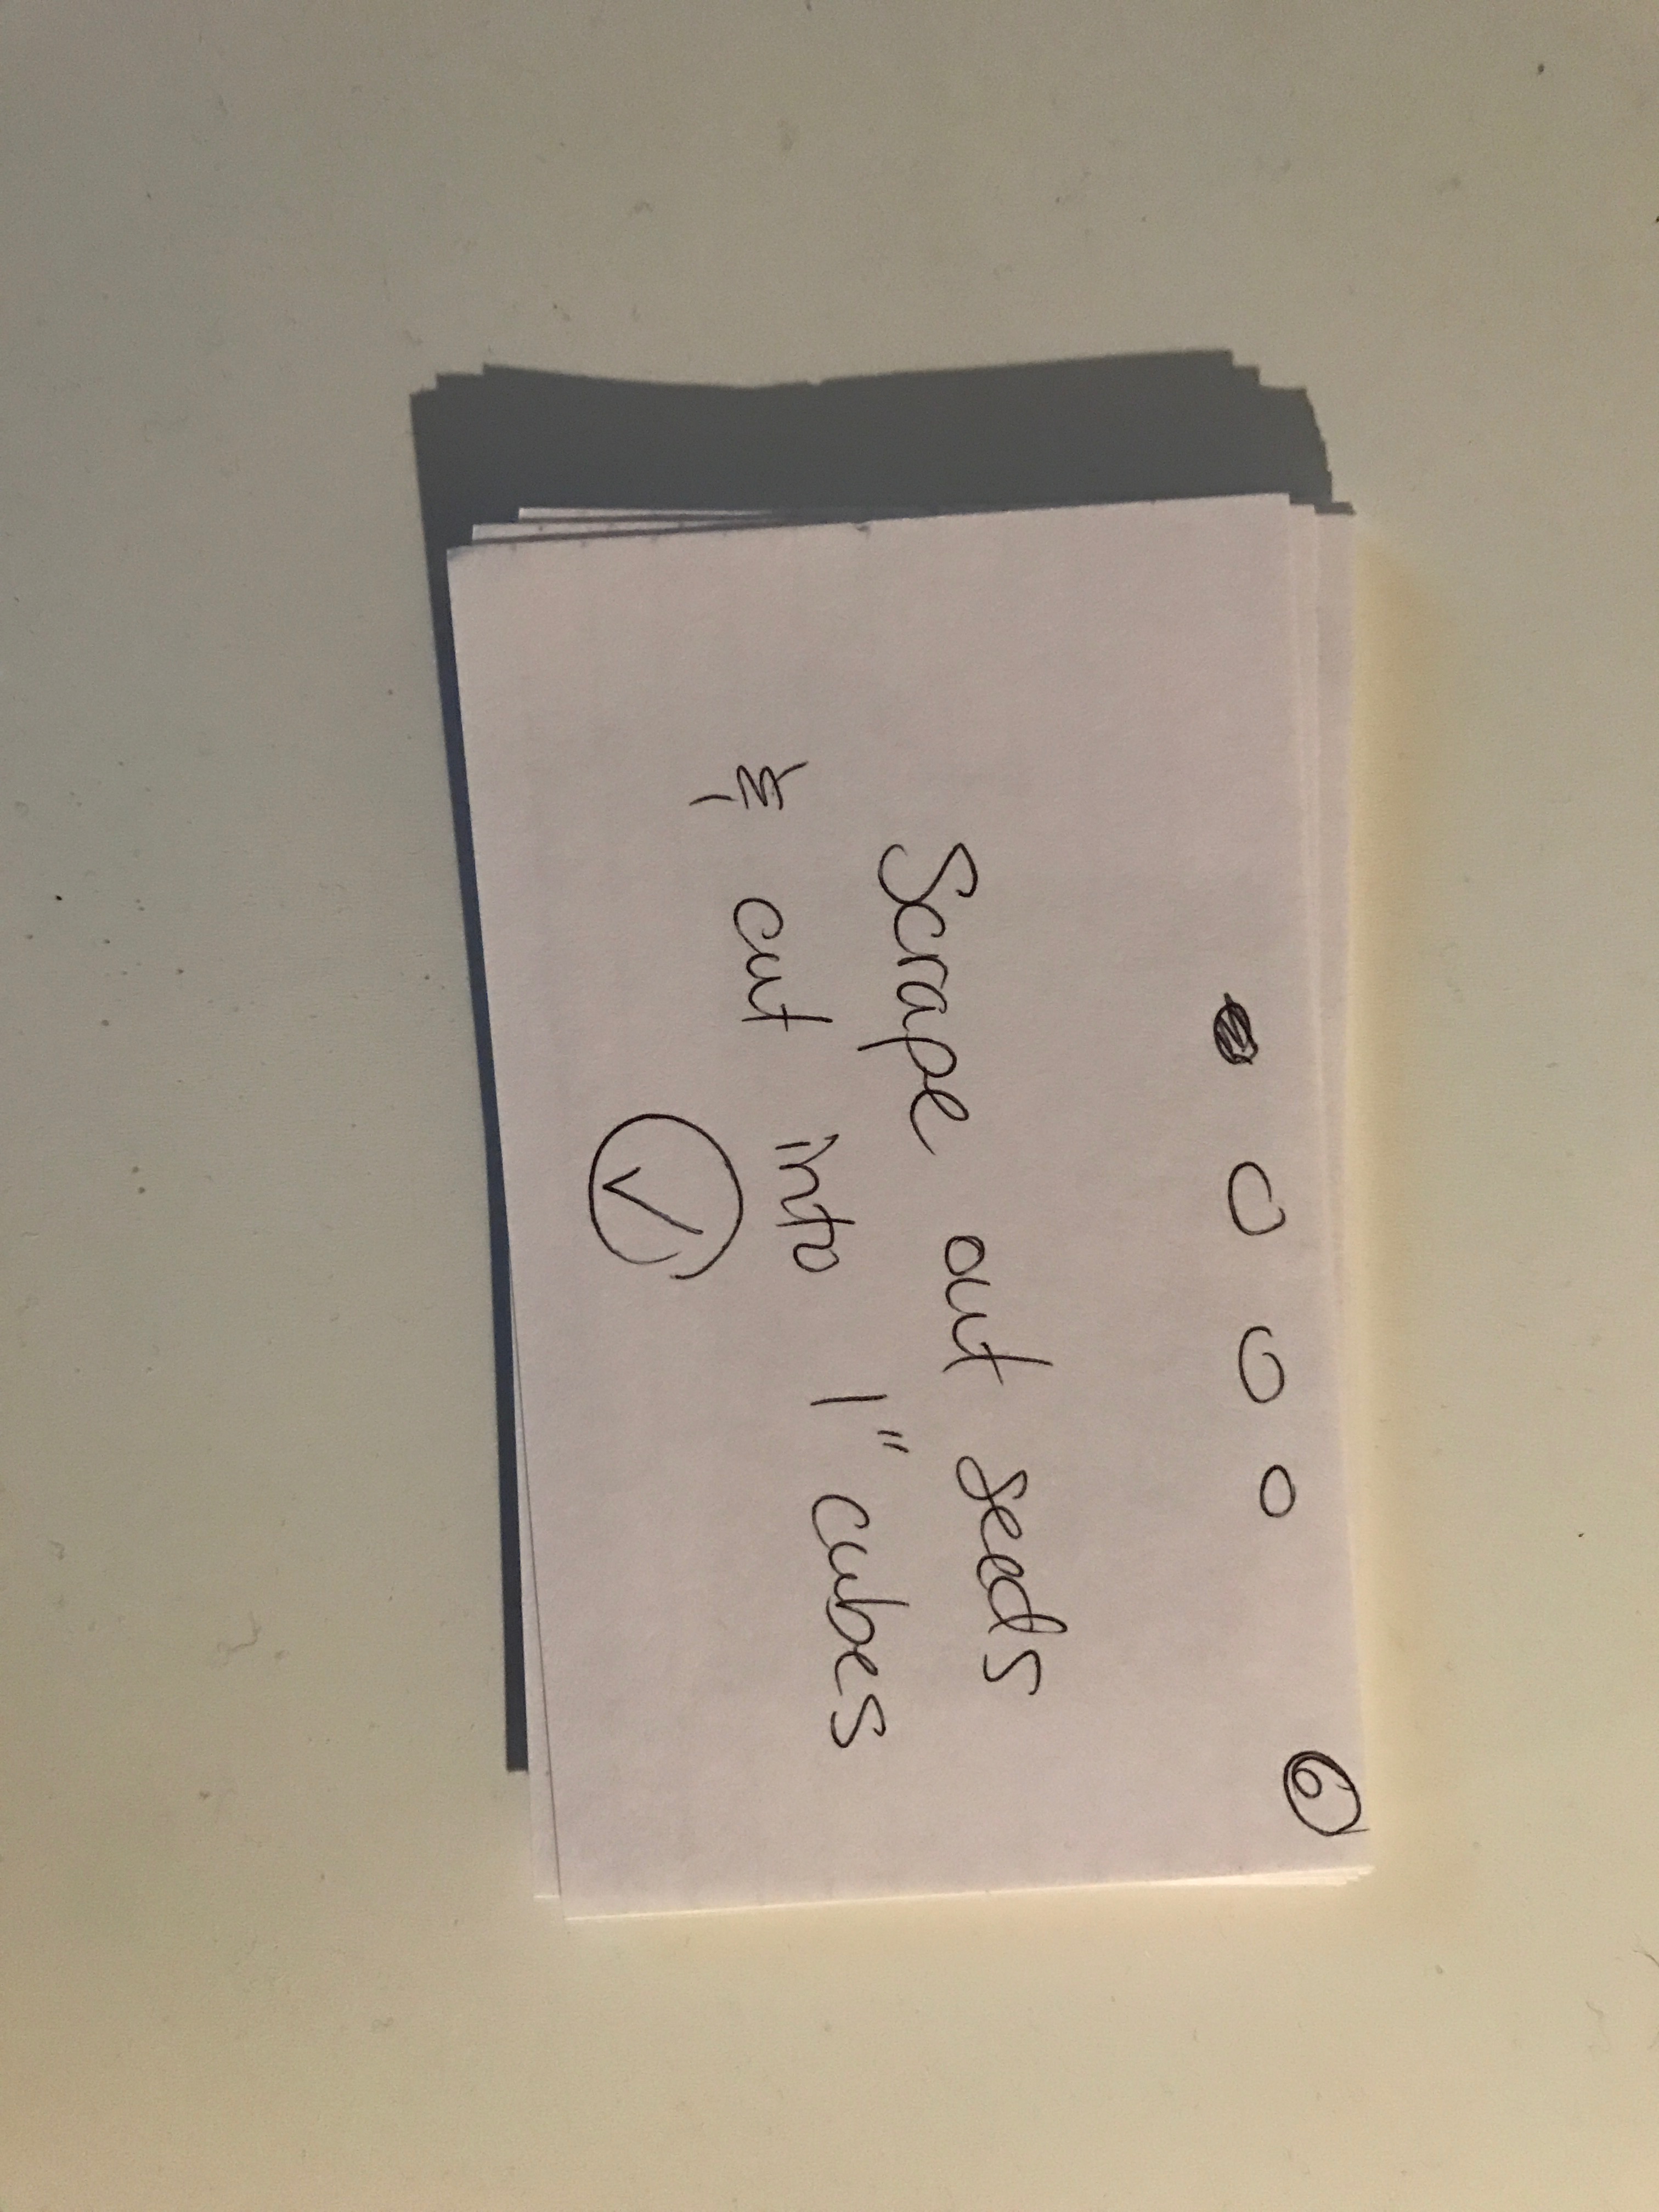 6
Scrape out seeds
& cut into 1" cubes